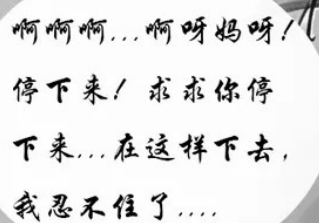 啊啊啊...啊呀妈呀!
停下来! 求求你停
下来...在这样下去,
我忍不住了....